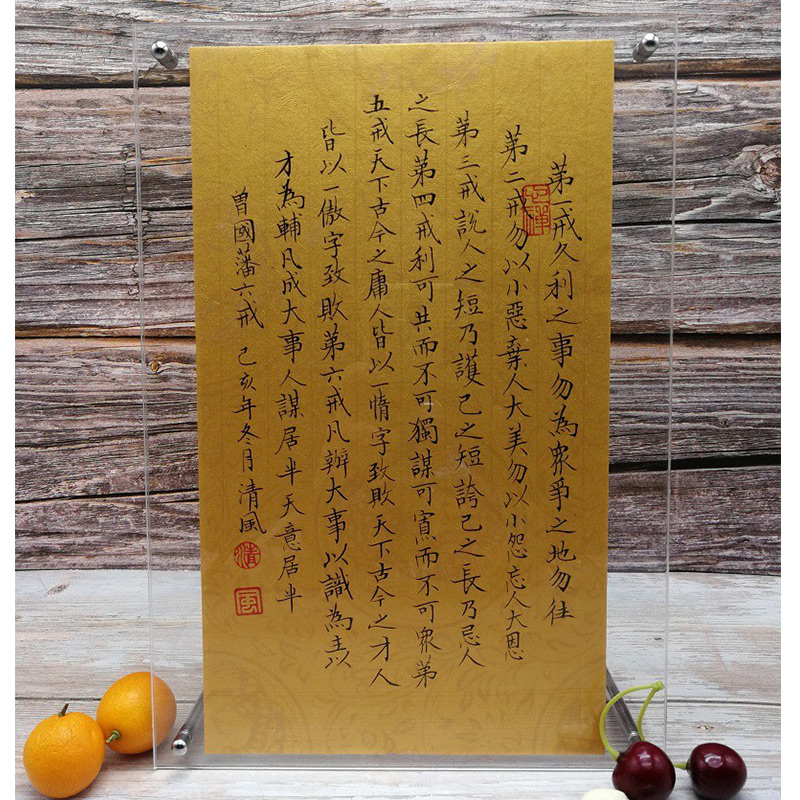 第一戒久利之事勿為衆爭之地勿往
第二戒勿以小惡棄人大美勿以小怨忘人大恩
第三戒說人之短乃護己之短誇己之長乃忌人
之長第四戒利可共而不可獨謀可寡而不可衆第
五戒天下古今之庸人皆以一惰字致敗天下古今之才人
皆以一傲字致敗第六戒凡辦大事以識為主以
才為輔凡成大事人謀居半天意居半
曾國藩六戒 己亥年冬月清風
清
風